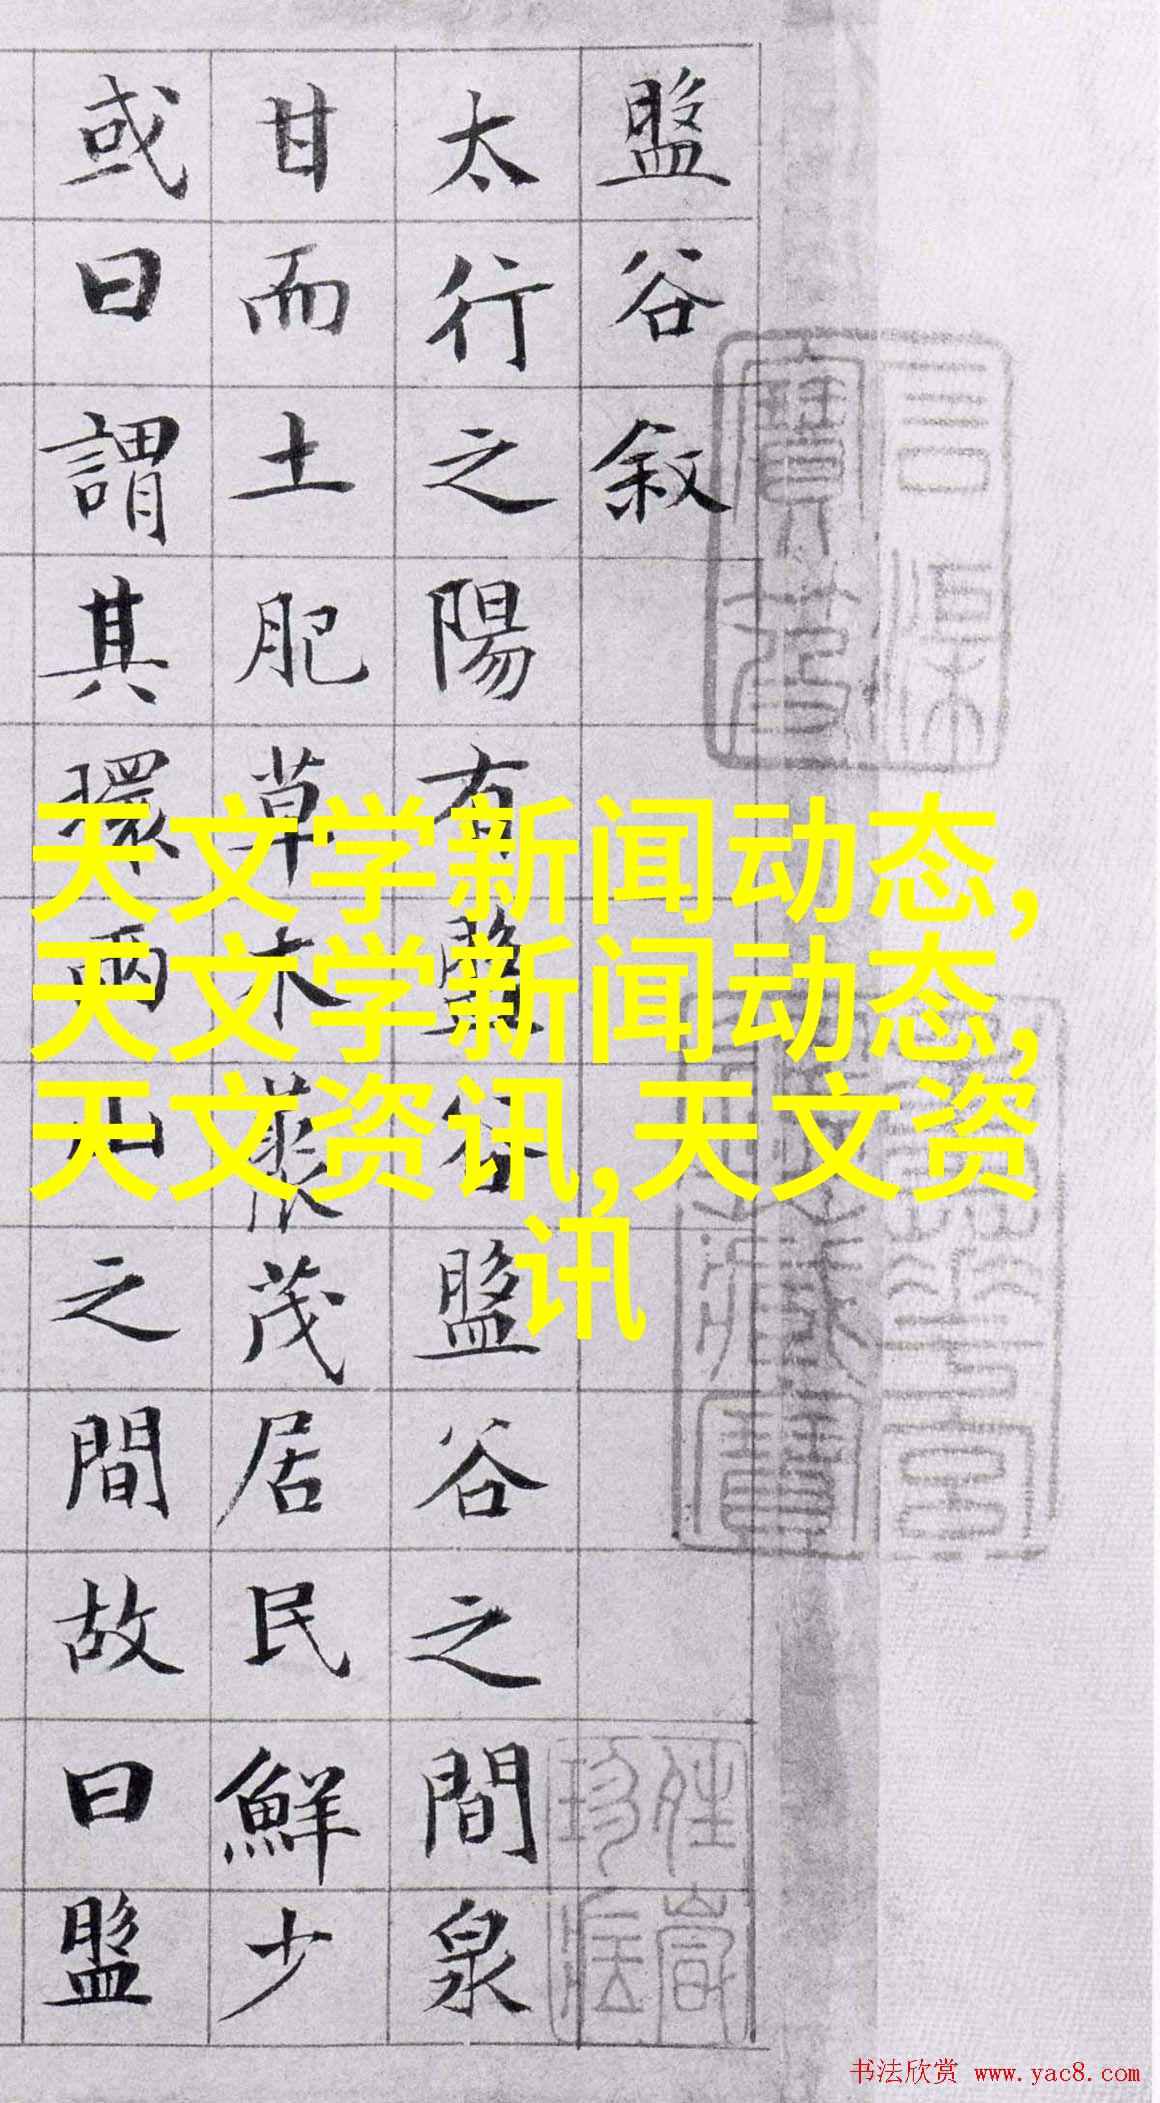 盤谷敘
太行之陽有盤谷盤谷之間泉
甘而土肥草木叢茂居民鮮少
或曰謂其環兩山之間故曰盤
天文学新闻动态,
天文学新闻动态,
天文资讯,天文资
讯
书法欣赏 www.yac8.com